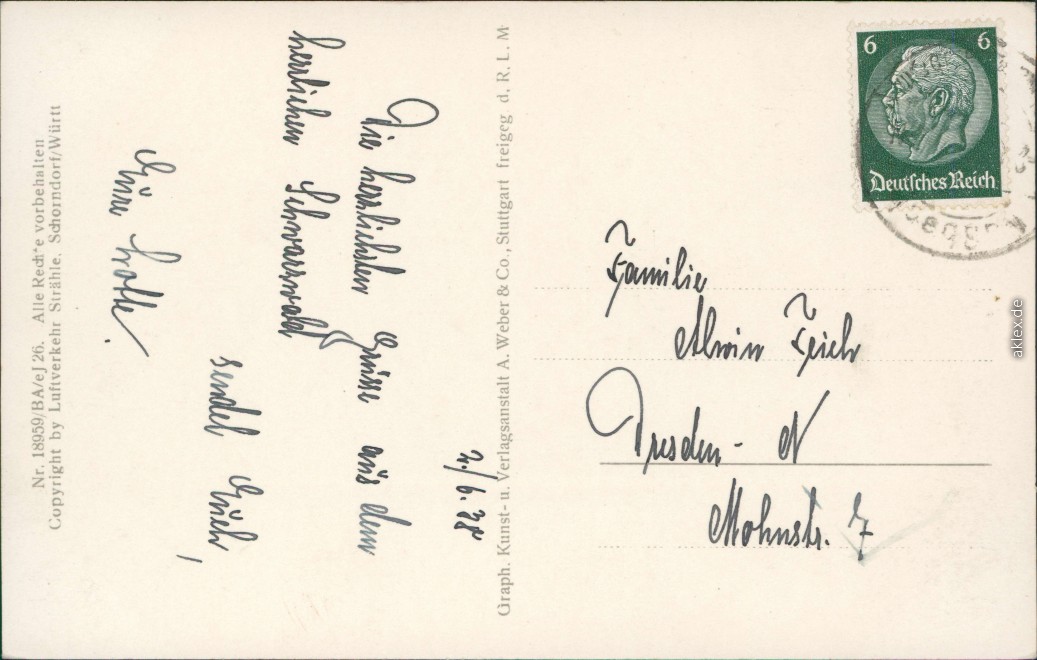 2./6.38
Die herrlichsten Grüsse aus dem
herrlichen Schwarzwald
sendet Euch,
Eure Lotte.
Nr. 18959/BA/eJ 26. Alle Rechte vorbehalten
Copyright by Luftverkehr Strähle, Schorndorf/Württ
Graph. Kunst- u. Verlagsanstalt A. Weber & Co., Stuttgart freigeg d. R. L. M
6 6
Deutsches Reich
Familie
Alwin Teich
Dresden - N
Mohnstr. 7
aklex.de